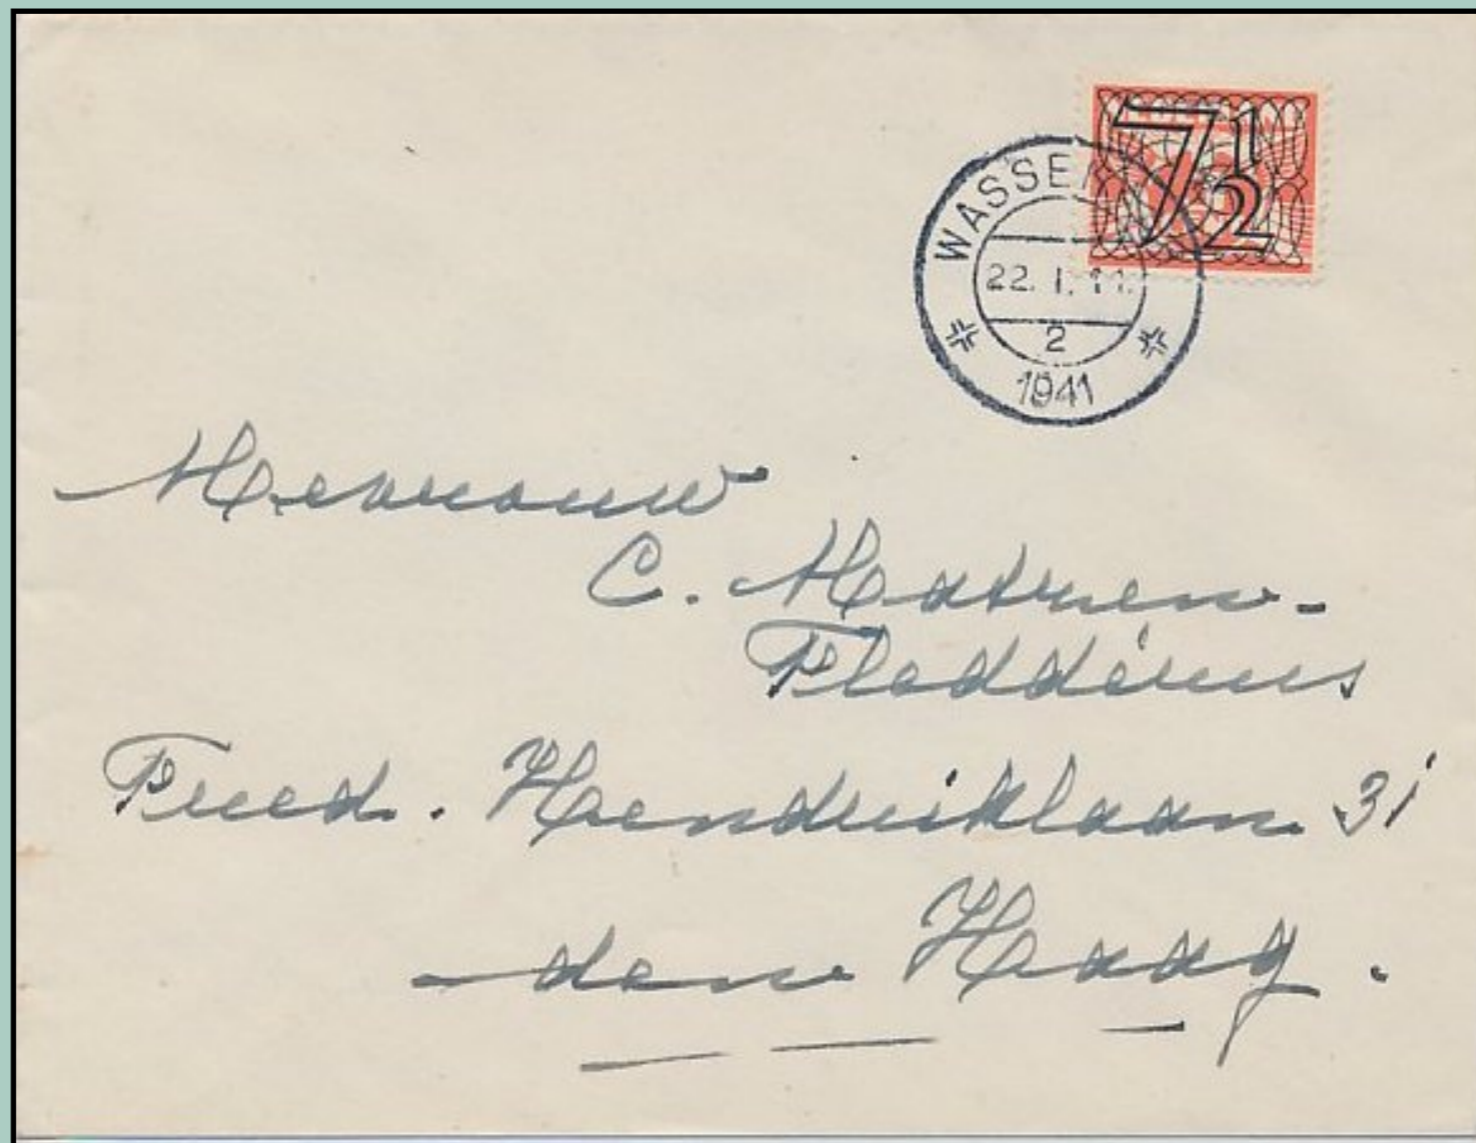 7½
WASSEN
22. I. 11.
2
1941
Mevrouw
C. Matren-
Fledderus
Fred. Hendriklaan 31
den Haag.